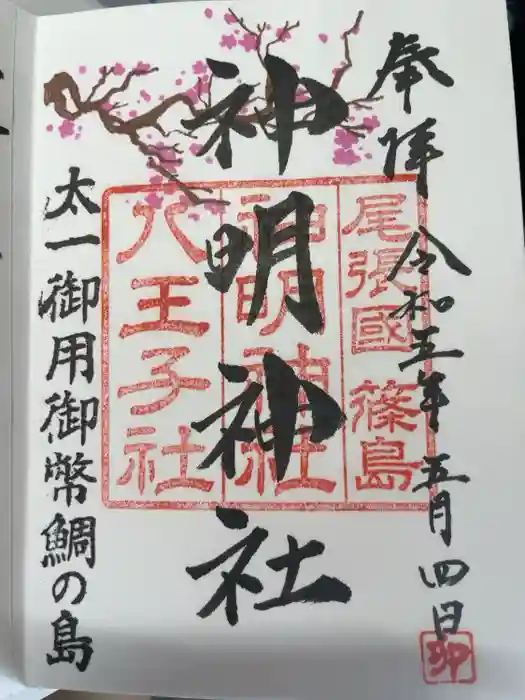 奉拝
令和五年 五月四日
神明神社
尾張國 篠島
神明神社
八王子社
太一御用御幣鯛の島